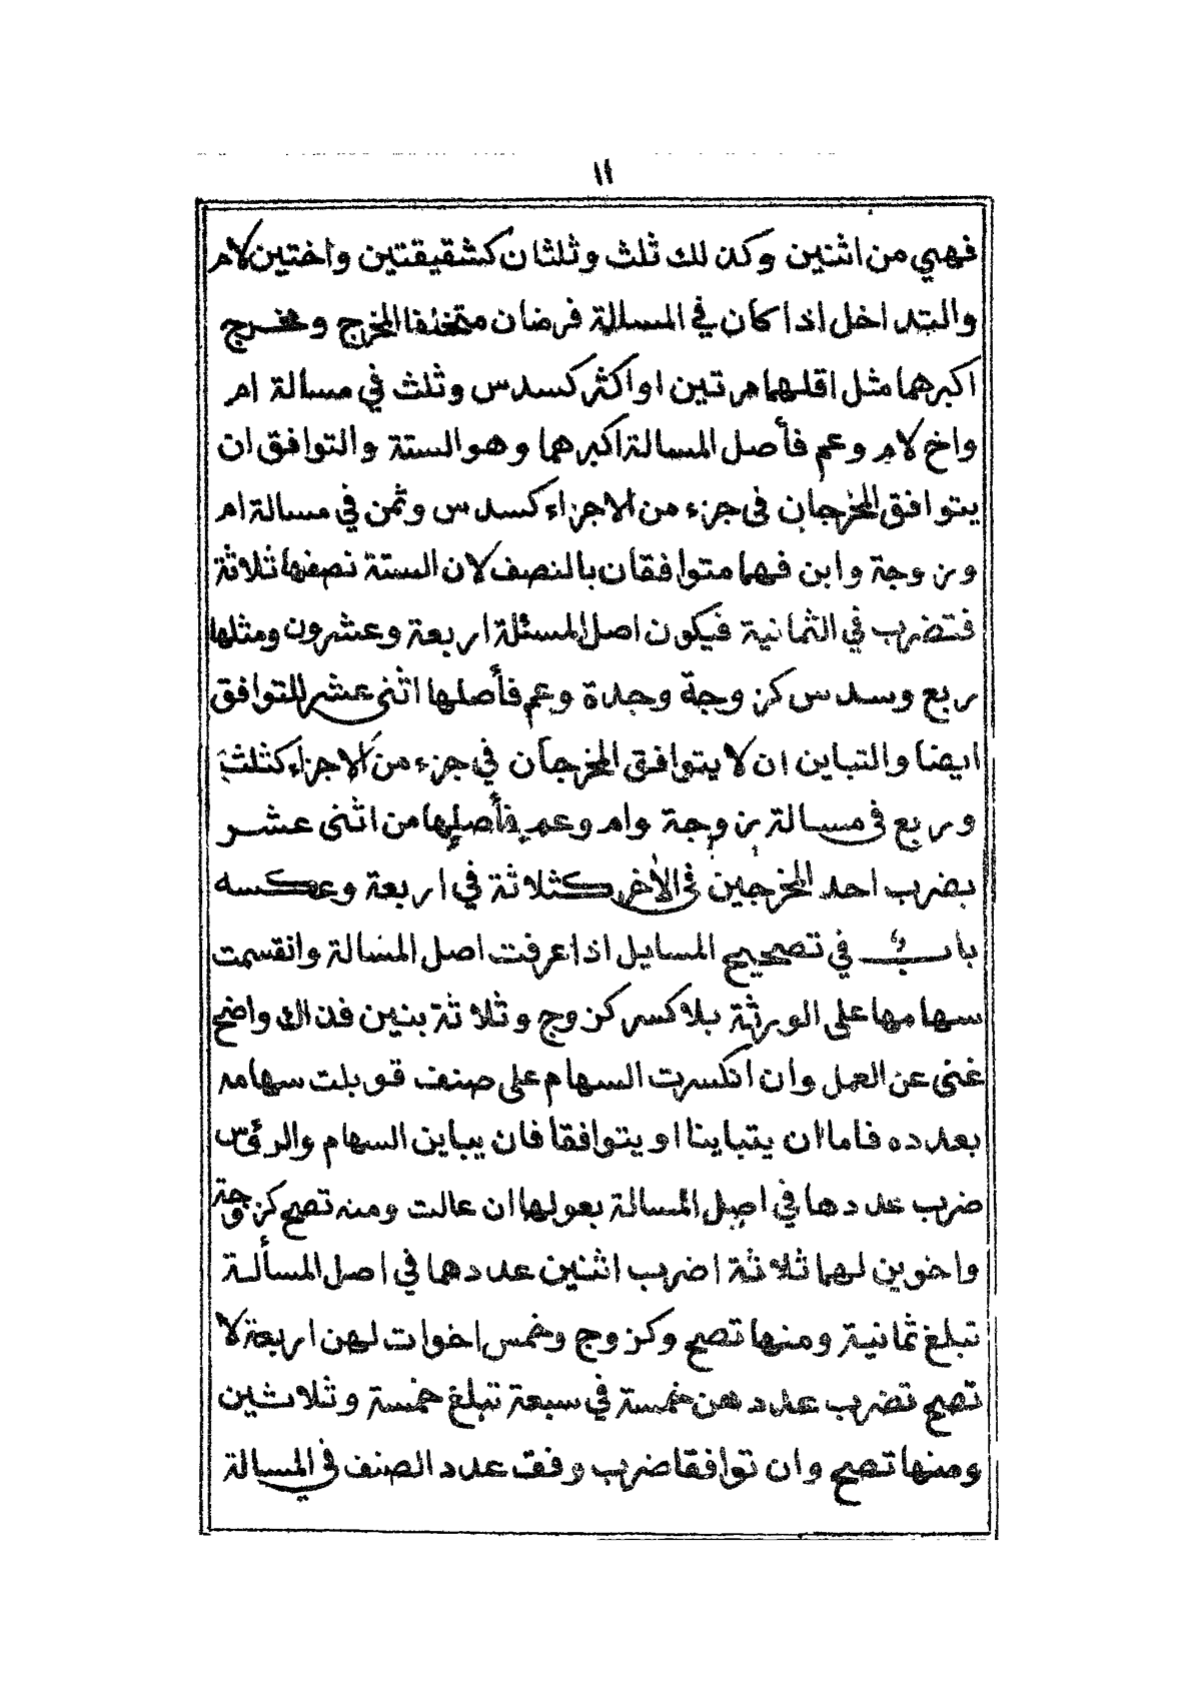 ١١
فهي من اثنين وكذلك ثلث وثلثان كشقيقتين واختين لام
والتداخل اذا كان في المسالة فرضان مختلفا المخرج ومخرج
اكبرهما مثل اقلهما مرتين او اكثر كسدس وثلث في مسالة ام
واخ لام وعم فأصل المسالة اكبرهما وهو الستة والتوافق ان
يتوافق المخرجان فى جزء من الاجزاء كسدس وثمن في مسالة ام
وزوجة وابن فهما متوافقان بالنصف لان الستة نصفها ثلاثة
فتضرب في الثمانية فيكون اصل المسئلة اربعة وعشرون ومثلها
ربع وسدس كزوجة وجدة وعم فأصلها اثنى عشر للتوافق
ايضا والتباين ان لا يتوافق المخرجان في جزء من الاجزاء كثلث
وربع فى مسالة زوجة وام وعم فأصلها من اثنى عشر
بضرب احد المخرجين فى الأخر كثلاثة في اربعة وعكسه
باب في تصحيح المسايل اذا عرفت اصل المسالة وانقسمت
سهامها على الورثة بلا كسر كزوج وثلاثة بنين فذاك واضح
غنى عن العمل وان انكسرت السهام على صنف قوبلت سهامه
بعدده فاما ان يتباينا او يتوافقا فان يباين السهام والرؤس
ضرب عددها في اصل المسالة بعولها ان عالت ومنه تصح كزوجة
واخوين لهما ثلاثة اضرب اثنين عددهما في اصل المسألة
تبلغ ثمانية ومنها تصح وكزوج وخمس اخوات لهن اربعة لا
تصح تضرب عددهن خمسة في سبعة تبلغ خمسة وثلاثين
ومنها تصح وان توافقا ضرب وفق عدد الصنف فى المسالة